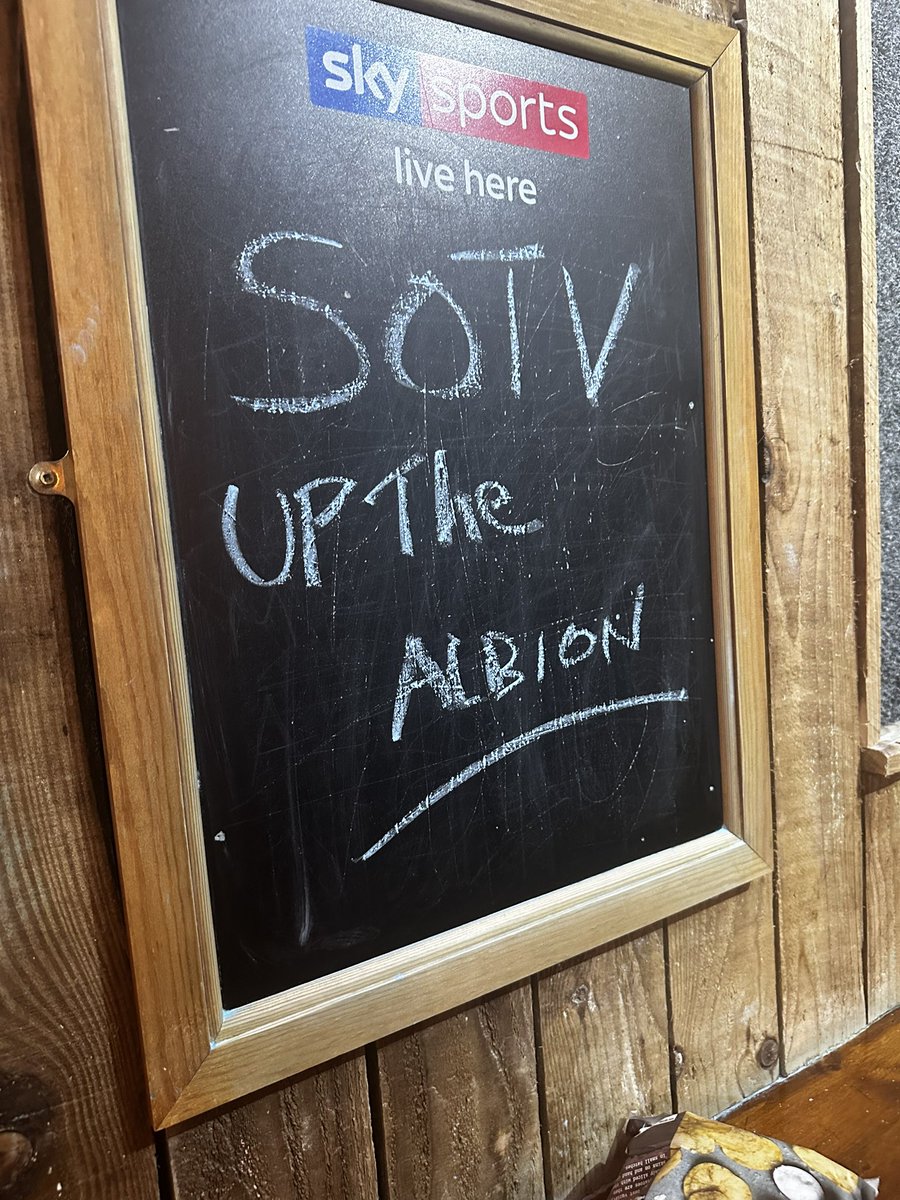 sky sports
live here
SOTV
UP The
ALBION